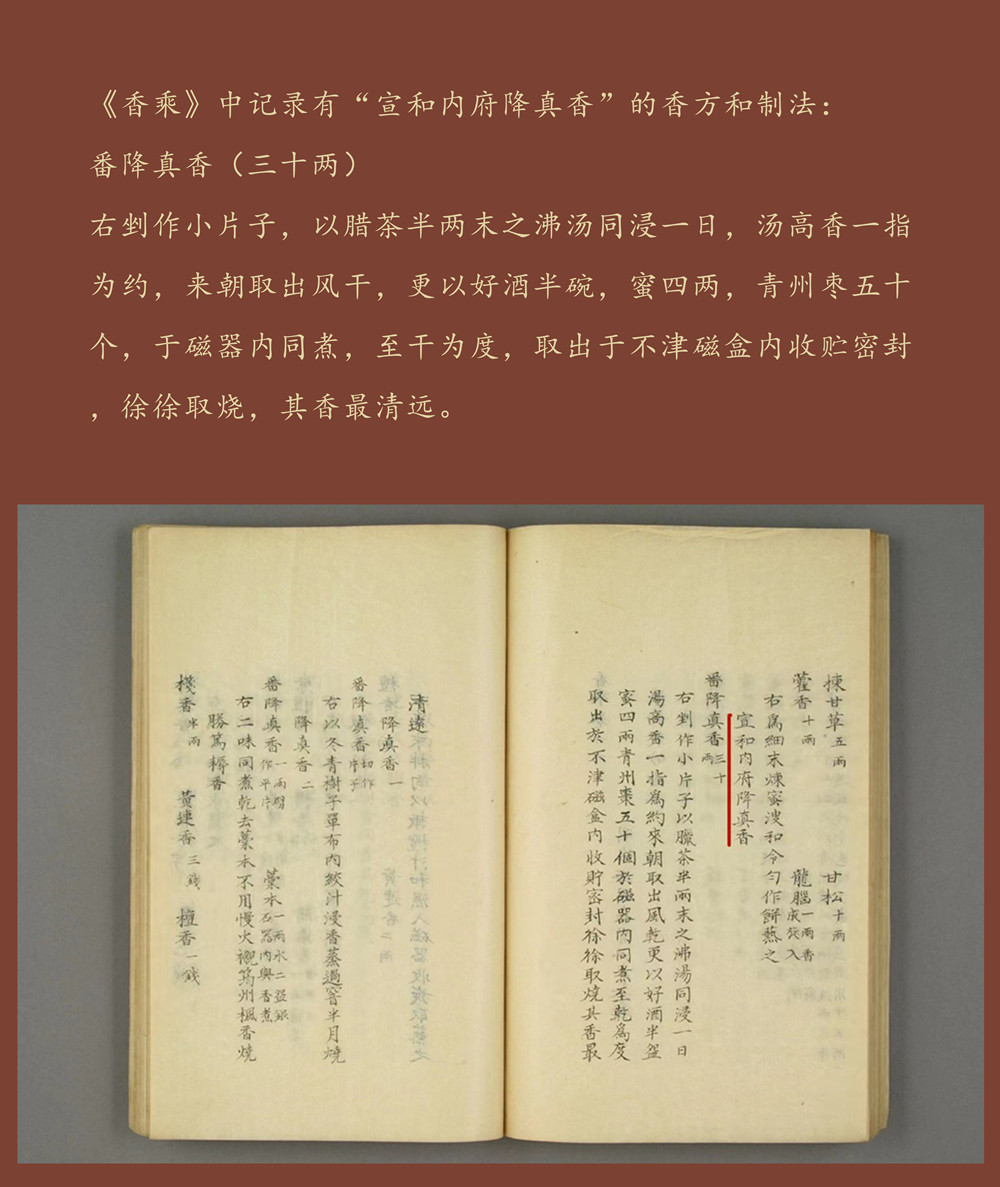 《香乘》中记录有“宣和内府降真香”的香方和制法：
番降真香（三十两）
右剉作小片子，以腊茶半两末之沸汤同浸一日，汤高香一指
为约，来朝取出风干，更以好酒半碗，蜜四两，青州枣五十
个，于磁器内同煮，至干为度，取出于不津磁盒内收贮密封
，徐徐取烧，其香最清远。
揀甘草五兩 甘松十兩
藿香十兩 龍腦一兩香成旋入
右為細末煉蜜溲和令勻作餅爇之
宣和内府降真香
番降真香三十兩
右剉作小片子以臘茶半兩末之沸湯同浸一日
湯高香一指為約來朝取出風乾更以好酒半盌
蜜四兩青州棗五十個於磁器内同煮至乾為度
取出於不津磁盒内收貯密封徐徐取燒其香最
清遠
降真香一
番降真香切作片子
右以冬青樹子單布内絞汁浸香蒸過窨半月燒
降真香二
番降真香一兩劈作平片 藁本一兩水二盌銀石器内與香煮
右二味同煮乾去藁本不用慢火襯筠州楓香燒
勝篤耨香
棧香半兩 黄連香三錢 檀香一錢